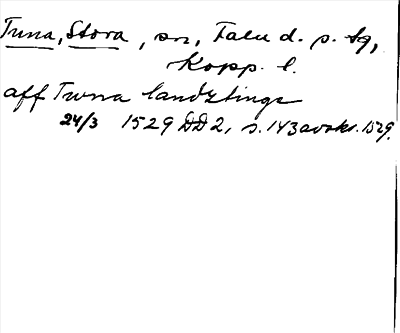 Tuna, Stora, sn, Falu d. s. tg,
Kopp. l.
aff Twna landztings
24/3 1529 DD2, s. 143 avskr. 1529.